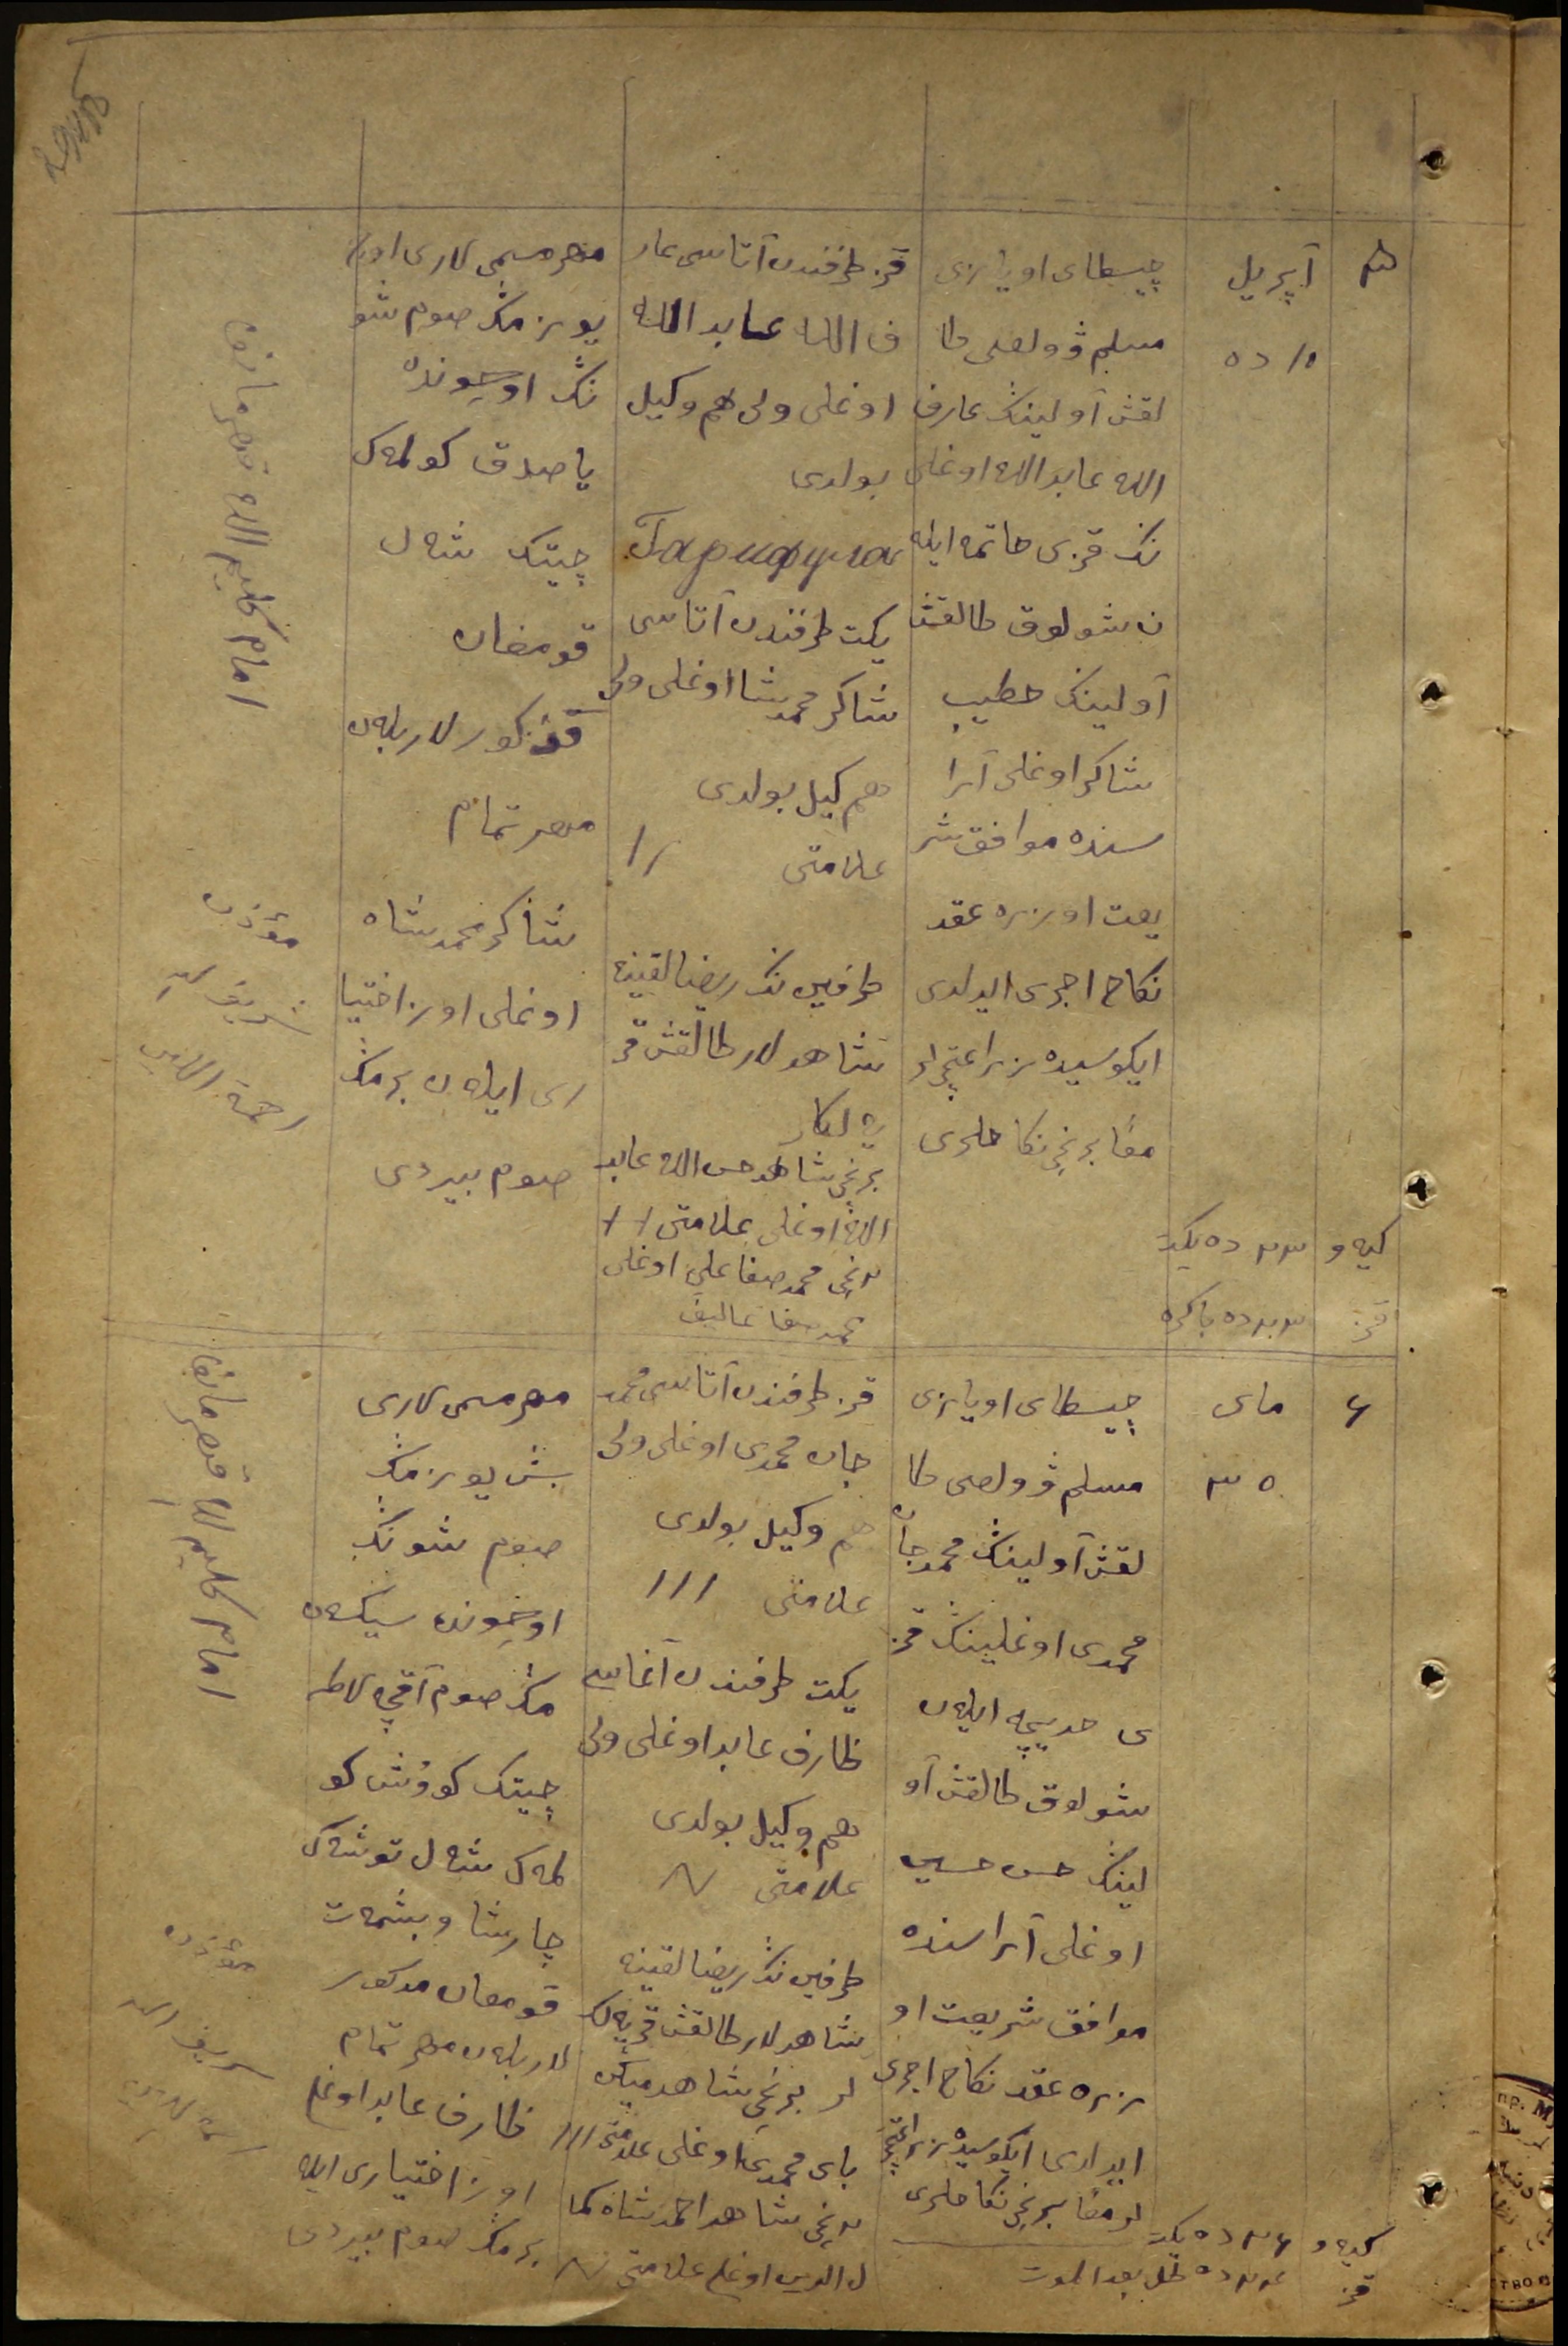 ۵
آپریل
۱۵ ده
چیسطای اویازی
مسلم ڤولصی طا
لقش آولینڭ عارف
الله عابد الله اوغلی
نڭ قزی حاتمه ایله
ن شولوق طالقش
آولینڭ خطیب
شاکر اوغلی آرا
سنده موافق شر
یعت اوزره عقد
نکاح اجری ایدلدی
ایکوسیده زراعتچیلر
معًا برنچی نکاحلری
کیه و
۲۳ ده یکت
قز
۲۳ ده باکره
قز طرفندن آتاسی عار
ف الله عابد الله
اوغلی ولی هم وکیل
بولدی
Гарифулла
یکت طرفندن آتاسی
شاکر محمدشا اوغلی ولی
هم کیل بولدی
علامتی
طرفین نڭ ریضالقینه
شاهدلار طالقش قر
یه لکلر
برنچی شاهد حسن الله عابد
الله اوغلی علامتی
۲ نچی محمد صفا علی اوغلی
محمد صفا عالیف
مهر مسمی لاری اون
یوز مڭ صوم شو
نڭ اوچونده
یاصدق کولمه ک
چیتک شه ل
قومغان
مذکور لار بله ن
مهر تمام
شاکر محمدشاه
اوغلی اوز اختیا
ری ایله ن بر مڭ
صوم بیردی
امام کلیم الله
مؤذن
شریف الله
رحمة الله
۶
مای
۳۵
چیسطای اویازی
مسلم ڤولصی طا
لقش آولینڭ محمد جان
محمدی اوغلینڭ قز
ی خدیچه ایله ن
شولوق طالقش آو
لینڭ حسن حسین
اوغلی آراسنده
موافق شریعت او
زره عقد نکاح اجری
ایدلدی ایکوسیده زراعتچی
لر معًا برنچی نکاحلری
کیه و
۲۶ ده یکت
قز
۲۴ ده طل بعد الموت
قز طرفندن آتاسی محمد
جان محمدی اوغلی ولی
هم وکیل بولدی
علامتی ///
یکت طرفندن آغاسی
ظارف عابد اوغلی ولی
هم وکیل بولدی
علامتی
طرفین نڭ ریضالقینه
شاهدلار طالقش قریه لک
لر برنچی شاهد میڭ
بای محمدی اوغلی علامتی ///
۲ نچی شاهد احمدشاه کما
ل الدین اوغلی علامتی
مهر مسمی لاری
بش یوز مڭ
صوم شونڭ
اوچونده سیکسه ن
مڭ صوم آقچه لاطه
چیتک کووش کو
لمه ک شه ل توشه ک
چارشاو بشمه ت
قومغان مذکور
لار بله ن مهر تمام
ظارف عابد اوغلی
اوز اختیاری ایله
بر مڭ صوم بیردی
امام کلیم الله
مؤذن
شریف الله